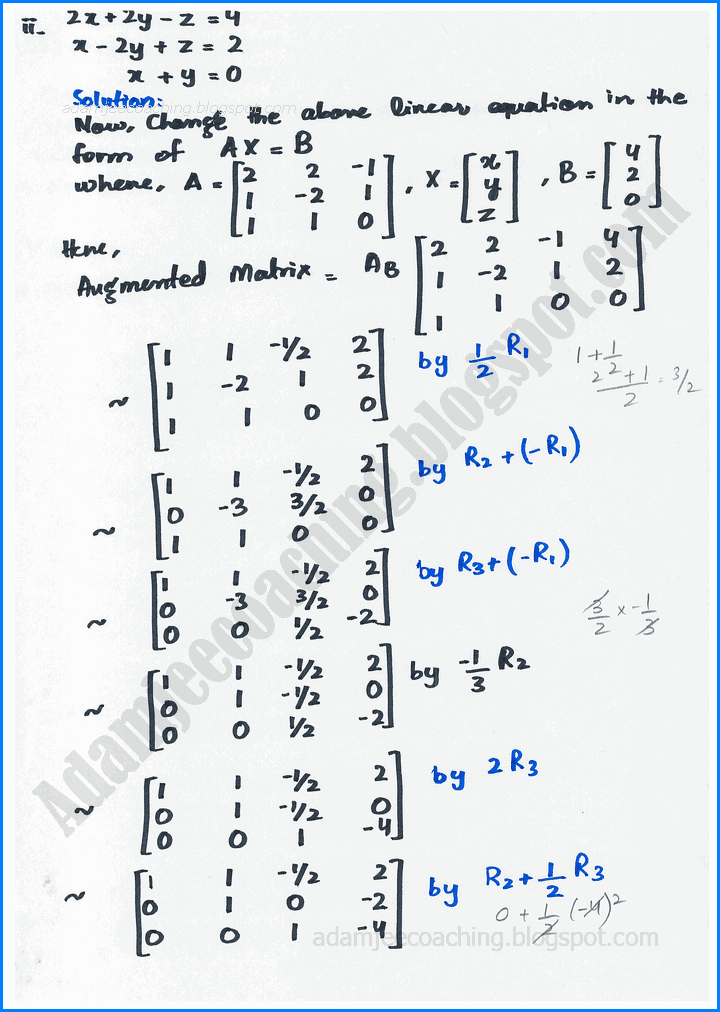 ii. 2x + 2y - z = 4
x - 2y + z = 2
x + y = 0
Solution:
adamjeecoaching.blogspot.com
Now, Change the above linear equation in the
form of AX = B
where, A = [2 2 -1; 1 -2 1; 1 1 0], X = [x; y; z], B = [4; 2; 0]
Here,
Augmented Matrix = AB [2 2 -1 4; 1 -2 1 2; 1 1 0 0]
~ [1 1 -1/2 2; 1 -2 1 2; 1 1 0 0] by 1/2 R1
1 + 1/2
2 + 1 / 2 = 3/2
~ [1 1 -1/2 2; 0 -3 3/2 0; 1 1 0 0] by R2 + (-R1)
~ [1 1 -1/2 2; 0 -3 3/2 0; 0 0 1/2 -2] by R3 + (-R1)
3/2 x -1/3
~ [1 1 -1/2 2; 0 1 -1/2 0; 0 0 1/2 -2] by -1/3 R2
~ [1 1 -1/2 2; 0 1 -1/2 0; 0 0 1 -4] by 2R3
~ [1 1 -1/2 2; 0 1 0 -2; 0 0 1 -4] by R2 + 1/2 R3
0 + 1/2 (-4) 2
adamjeecoaching.blogspot.com
Adamjeecoaching.blogspot.com